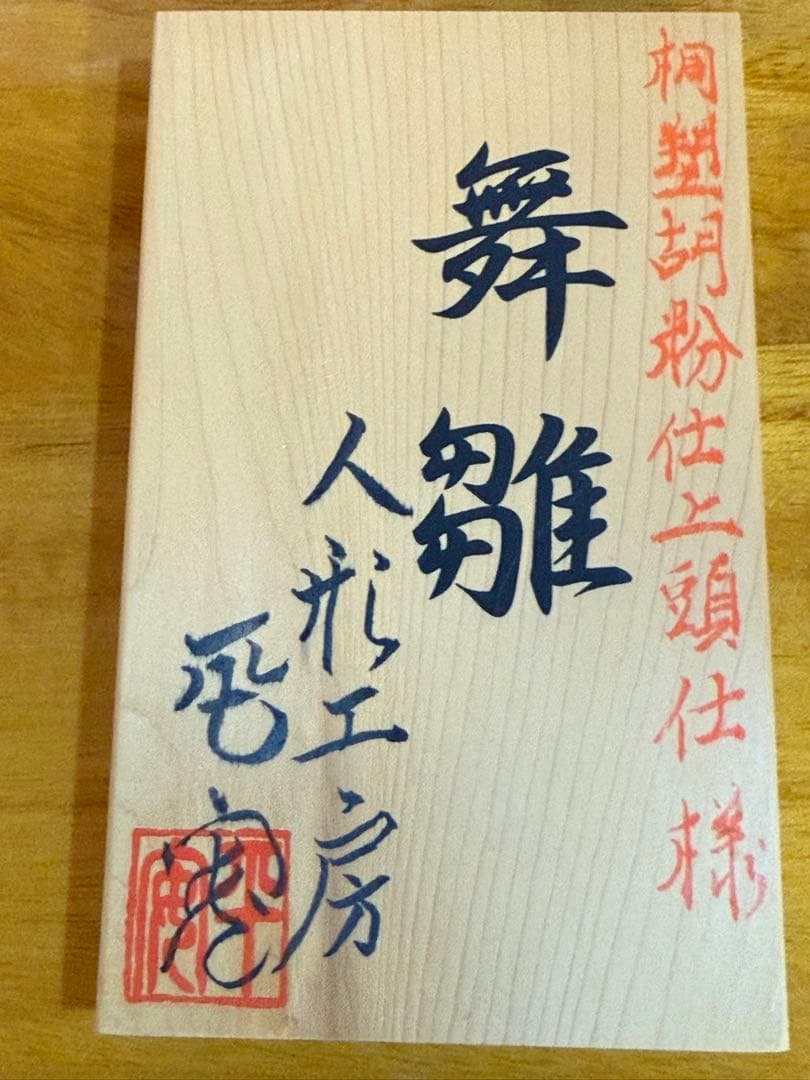 桐塑胡粉仕上頭仕様
舞雛
人形工房